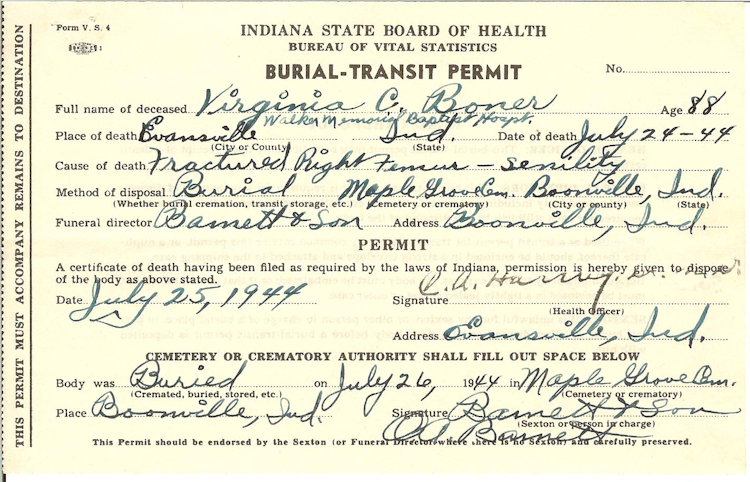 Form V. S. 4
INDIANA STATE BOARD OF HEALTH
BUREAU OF VITAL STATISTICS
BURIAL-TRANSIT PERMIT
No.
Full name of deceased Virginia C. Boner Age 88
Walker Memorial Baptist Hospt.
Place of death Evansville Ind Date of death July 24-44
(City or County) (State)
Cause of death Fractured Right Femur - senility
Method of disposal Burial Maple Grove Cem. Boonville, Ind.
(Whether burial cremation, transit, storage, etc.) (Cemetery or crematory) (City or county) (State)
Funeral director Barnett & Son Address Boonville, Ind.
PERMIT
A certificate of death having been filed as required by the laws of Indiana, permission is hereby given to dispose
of the body as above stated.
Date July 25, 1944 Signature
(Health Officer)
Address Evansville, Ind.
CEMETERY OR CREMATORY AUTHORITY SHALL FILL OUT SPACE BELOW
Body was Buried on July 26, 1944 in Maple Grove Cem.
(Cremated, buried, stored, etc.) (Cemetery or crematory)
Place Boonville, Ind. Signature Barnett & Son
(Sexton or person in charge)
Barnett
This Permit should be endorsed by the Sexton (or Funeral Director where there is no Sexton) and carefully preserved.
THIS PERMIT MUST ACCOMPANY REMAINS TO DESTINATION